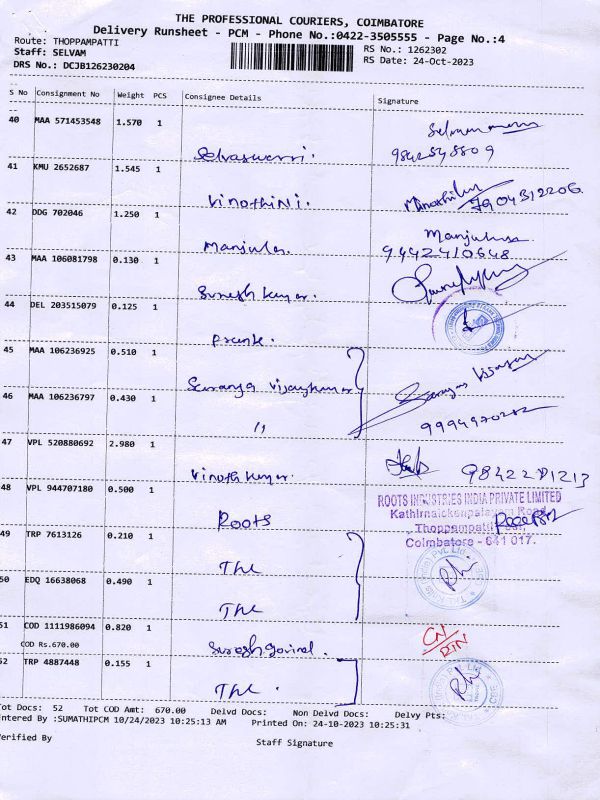 THE PROFESSIONAL COURIERS, COIMBATORE
Delivery Runsheet - PCM - Phone No.:0422-3505555 - Page No.:4
Route: THOPPAMPATTI
RS No.: 1262302
Staff: SELVAM
RS Date: 24-Oct-2023
DRS No.: DCJB126230204
S No Consignment No Weight PCS Consignee Details Signature
40 MAA 571453548 1.570 1
41 KMU 2652687 1.545 1
Vinothini.
42 DDG 702046 1.250 1
Manjula. Manjulusa
9442410648
43 MAA 106081798 0.130 1
Suresh kumar.
44 DEL 203515079 0.125 1
45 MAA 106236925 0.510 1
Vijaykumar
46 MAA 106236797 0.430 1
〃
47 VPL 520880692 2.980 1
Vinoth kumar.
48 VPL 944707180 0.500 1
ROOTS INDUSTRIES INDIA PRIVATE LIMITED
Kathirnaickenpalayam Road
Roots Thoppampatti Post,
Coimbatore - 641 017.
49 TRP 7613126 0.210 1
The
50 EDQ 16638068 0.490 1
The
51 COD 1111986094 0.820 1
COD RS.670.00
Suresh govind.
CN/RTN
52 TRP 4887448 0.155 1
The.
Tot Docs: 52 Tot COD Amt: 670.00 Delvd Docs: Non Delvd Docs: Delvy Pts:
Entered By :SUMATHIPCM 10/24/2023 10:25:13 AM Printed On: 24-10-2023 10:25:31
Verified By
Staff Signature